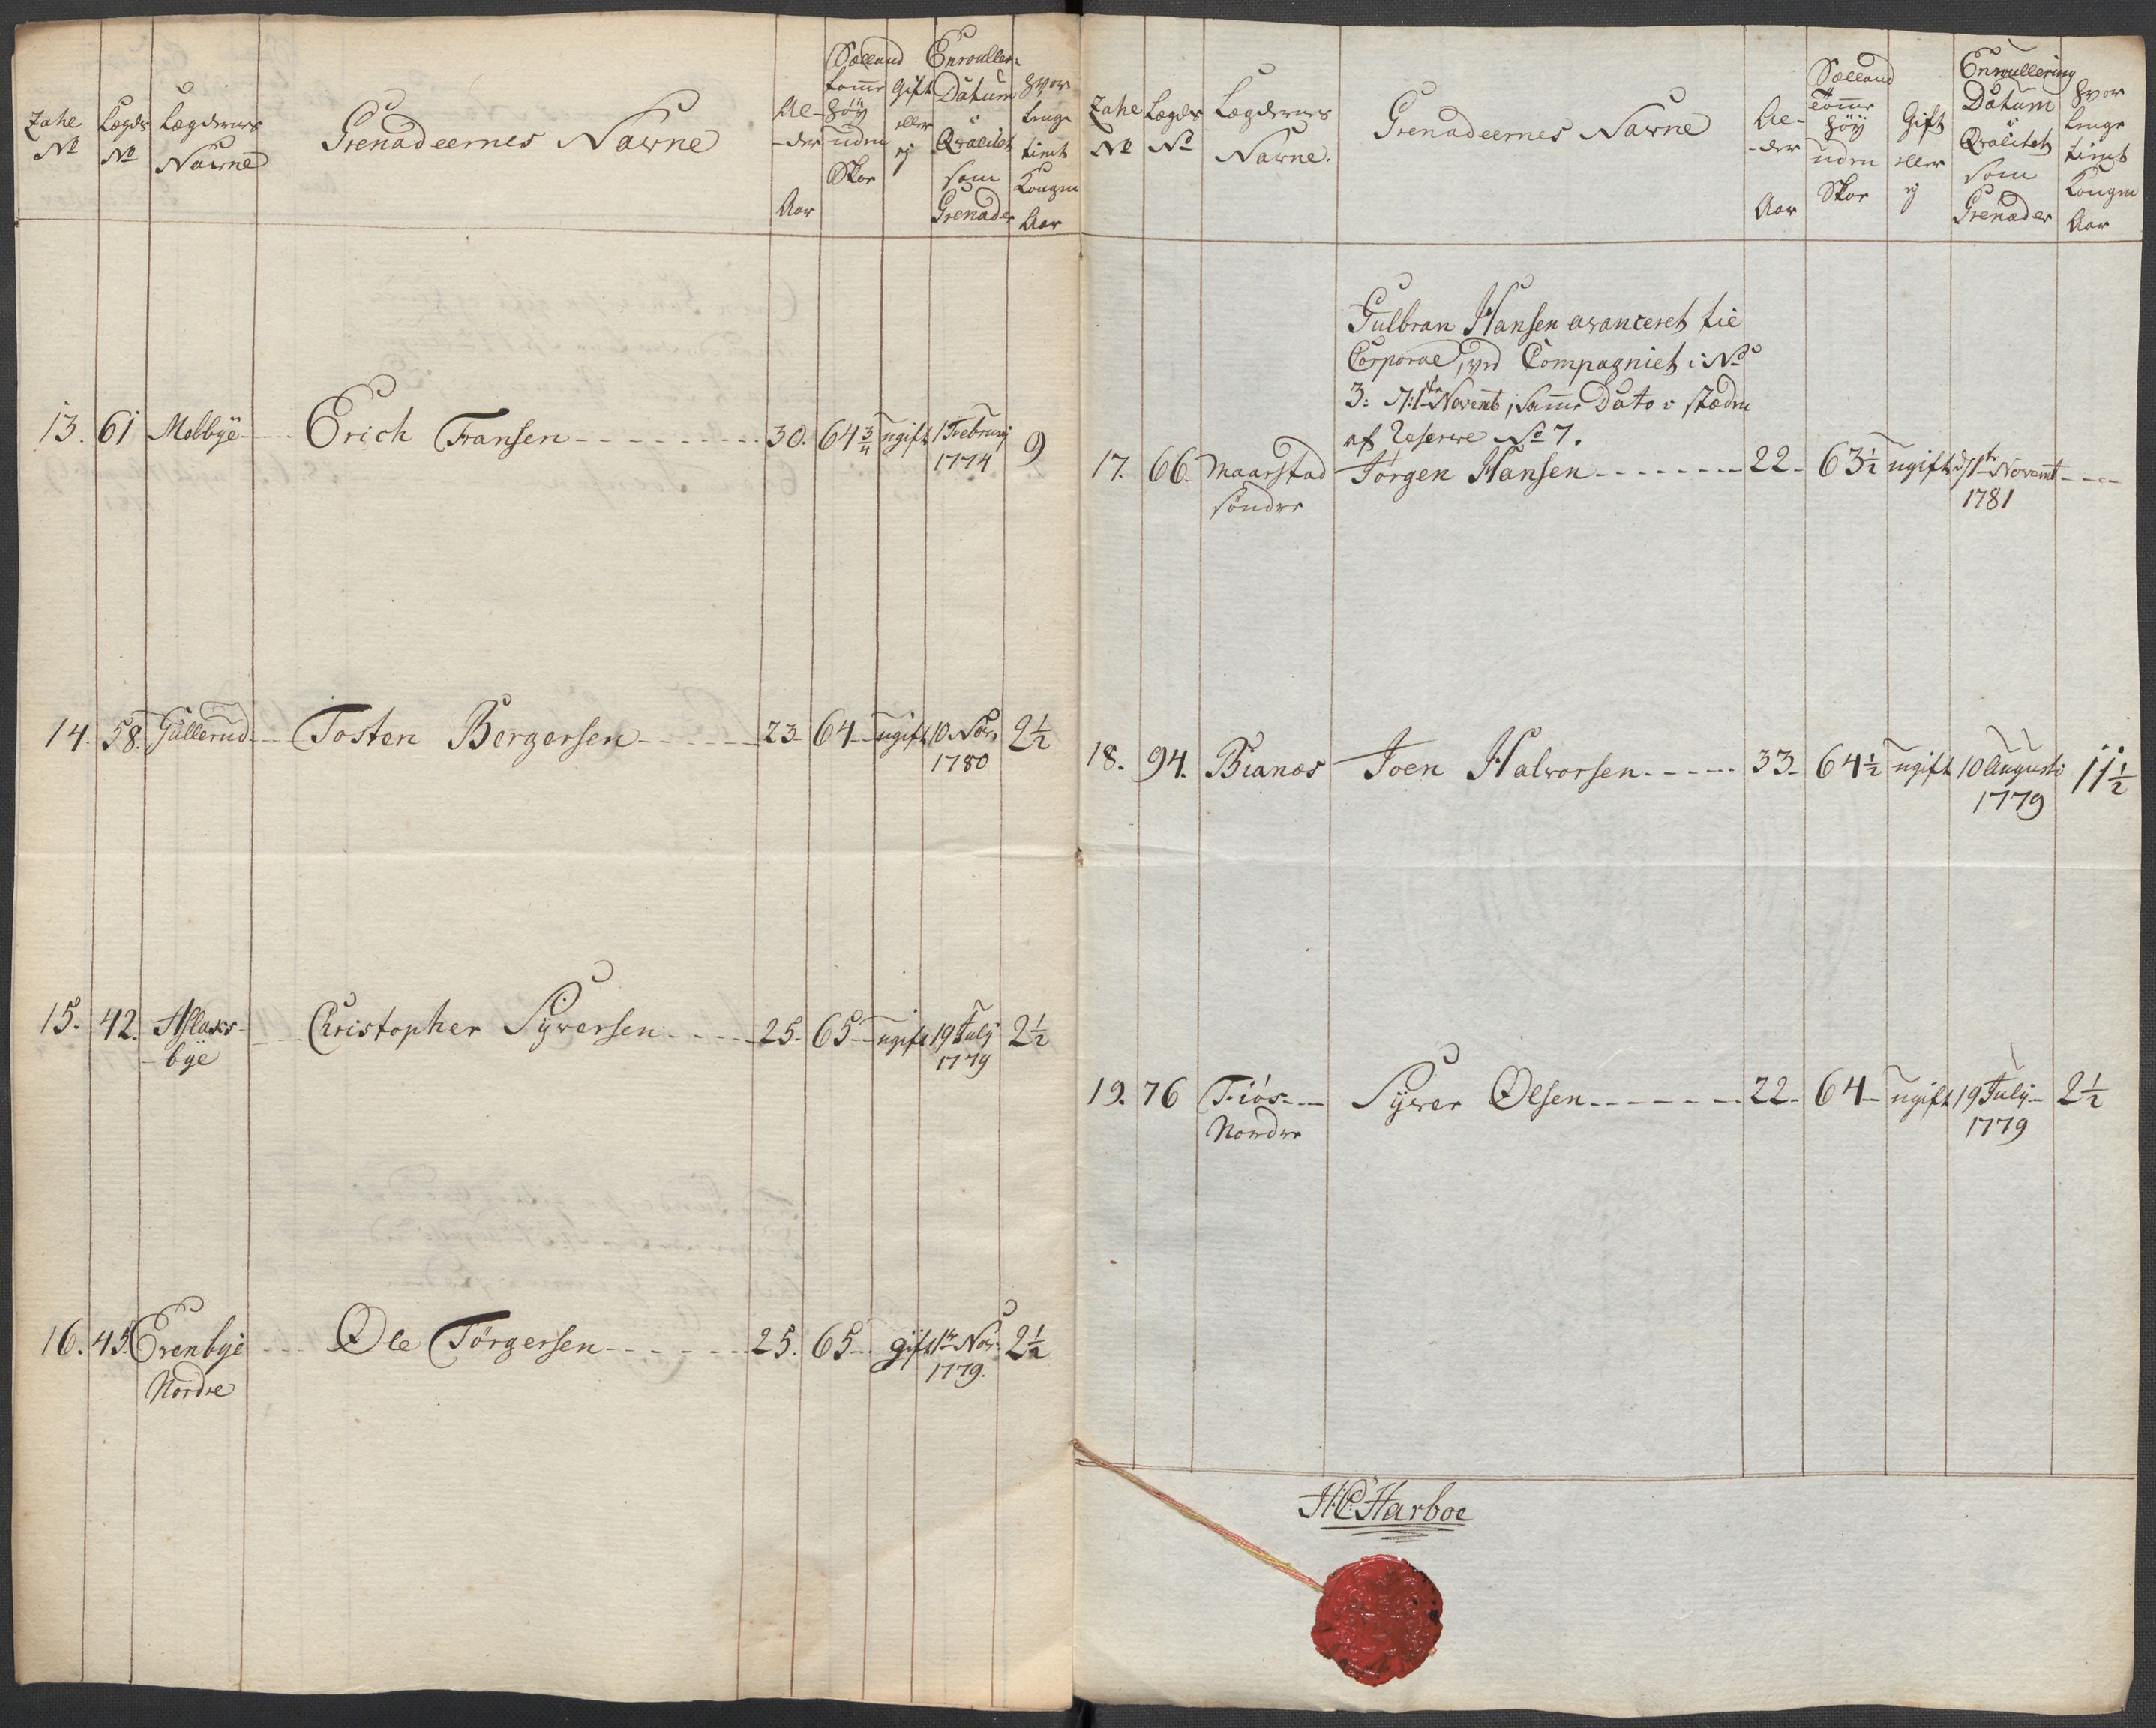 Zahl No
Lægds No
Lægdernes Nawne
Grenadeernes Nawne
Al-der Aar
Sælland tomr höÿ uden Skoe
Gift eller ej
Enroullerꝭ Datum Qvalitet som Grenader
Hvor lenge tient Kongen Aar
13. 61 Molbye Erich Fransen 30. 64 3/4 ugift 1 Februarij 9
1774
14. 58. Gullerud Tosten Bergersen 23 64 ugift 10 Nov. 2 1/2
1780
15. 42. Aslaks- Christopher Sÿversen 25. 65 ugift 19 Julÿ 2 1/2
-bye 1779
16. 45. Evenbye Ole Törgersen 25. 65 gift 1te Nov. 2 1/2
Nordre 1779.
Zahl No
Lægds No
Lægdernes Nawne.
Grenadeernes Nawne
Al-der Aar
Sælland tomr höÿ uden Skoe
Gift eller ej
Enroullering Datum Qvalitet som Grenader
Hvor lenge tient Kongen Aar
Gulbran Hansen avanceret til
Corporal, ved Compagniet i No
3: d: 1te Novemb, samme Dato i stæden
af Reserve No 7.
17. 66. Maarstad Jörgen Hansen 22 63 1/2 ugift d 1te Novembr
söndre 1781
18. 94. Bianæs Joen Halvorsen 33 64 1/2 ugift 10 Augusti 11 1/2
1779
19. 76 Fiös Sÿver Olsen 22 64 ugift 19 Julÿ 2 1/2
Nordre 1779
HC Harboe